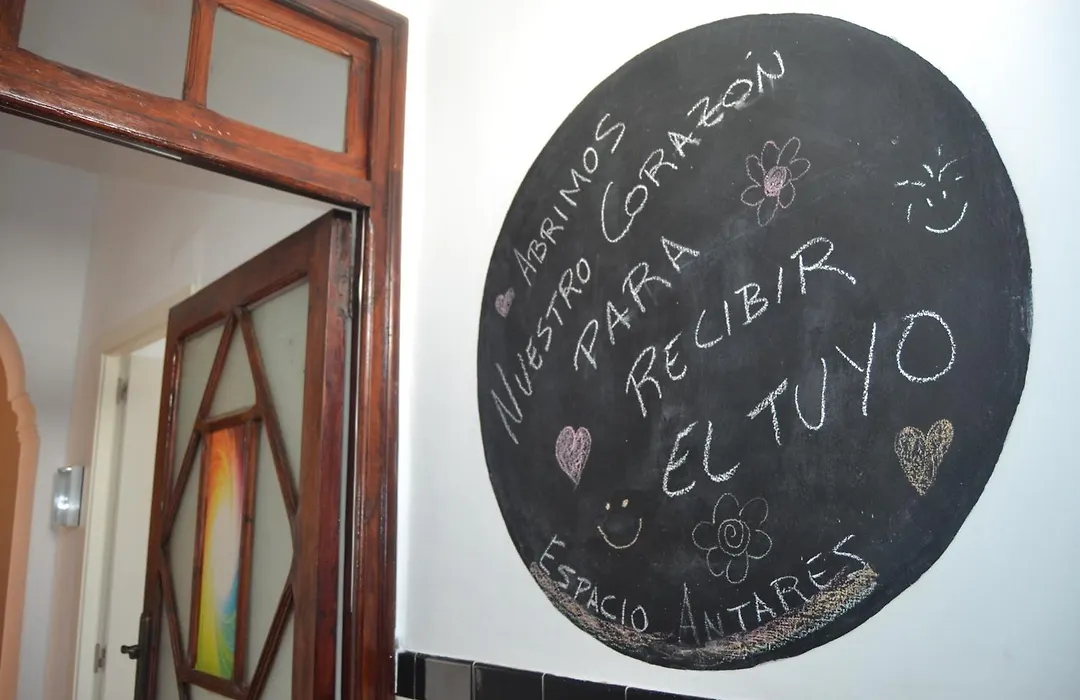 ABRIMOS
NUESTRO CORAZÓN
PARA
RECIBIR
EL TUYO
ESPACIO ANTARÉS